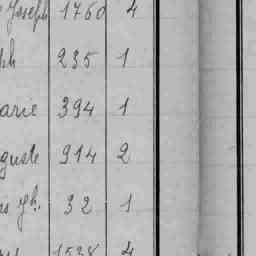 Joseph 1760 4
ph 235 1
arie 394 1
guste 914 2
s Jh. 32 1
1538 4